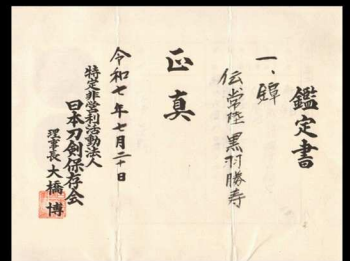 鑑定書
一、鍔
伝常陸 黒羽勝寿
正真
令和七年七月二十日
特定非営利活動法人
日本刀剣保存会
理事長 大橋 博